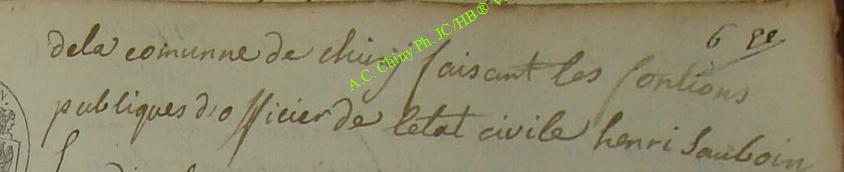 6
dela comunne de chiny faisant les fontions
publiques d'officier de letat civile henri Sauboin
A.C. Chiny Ph. JC/HB®